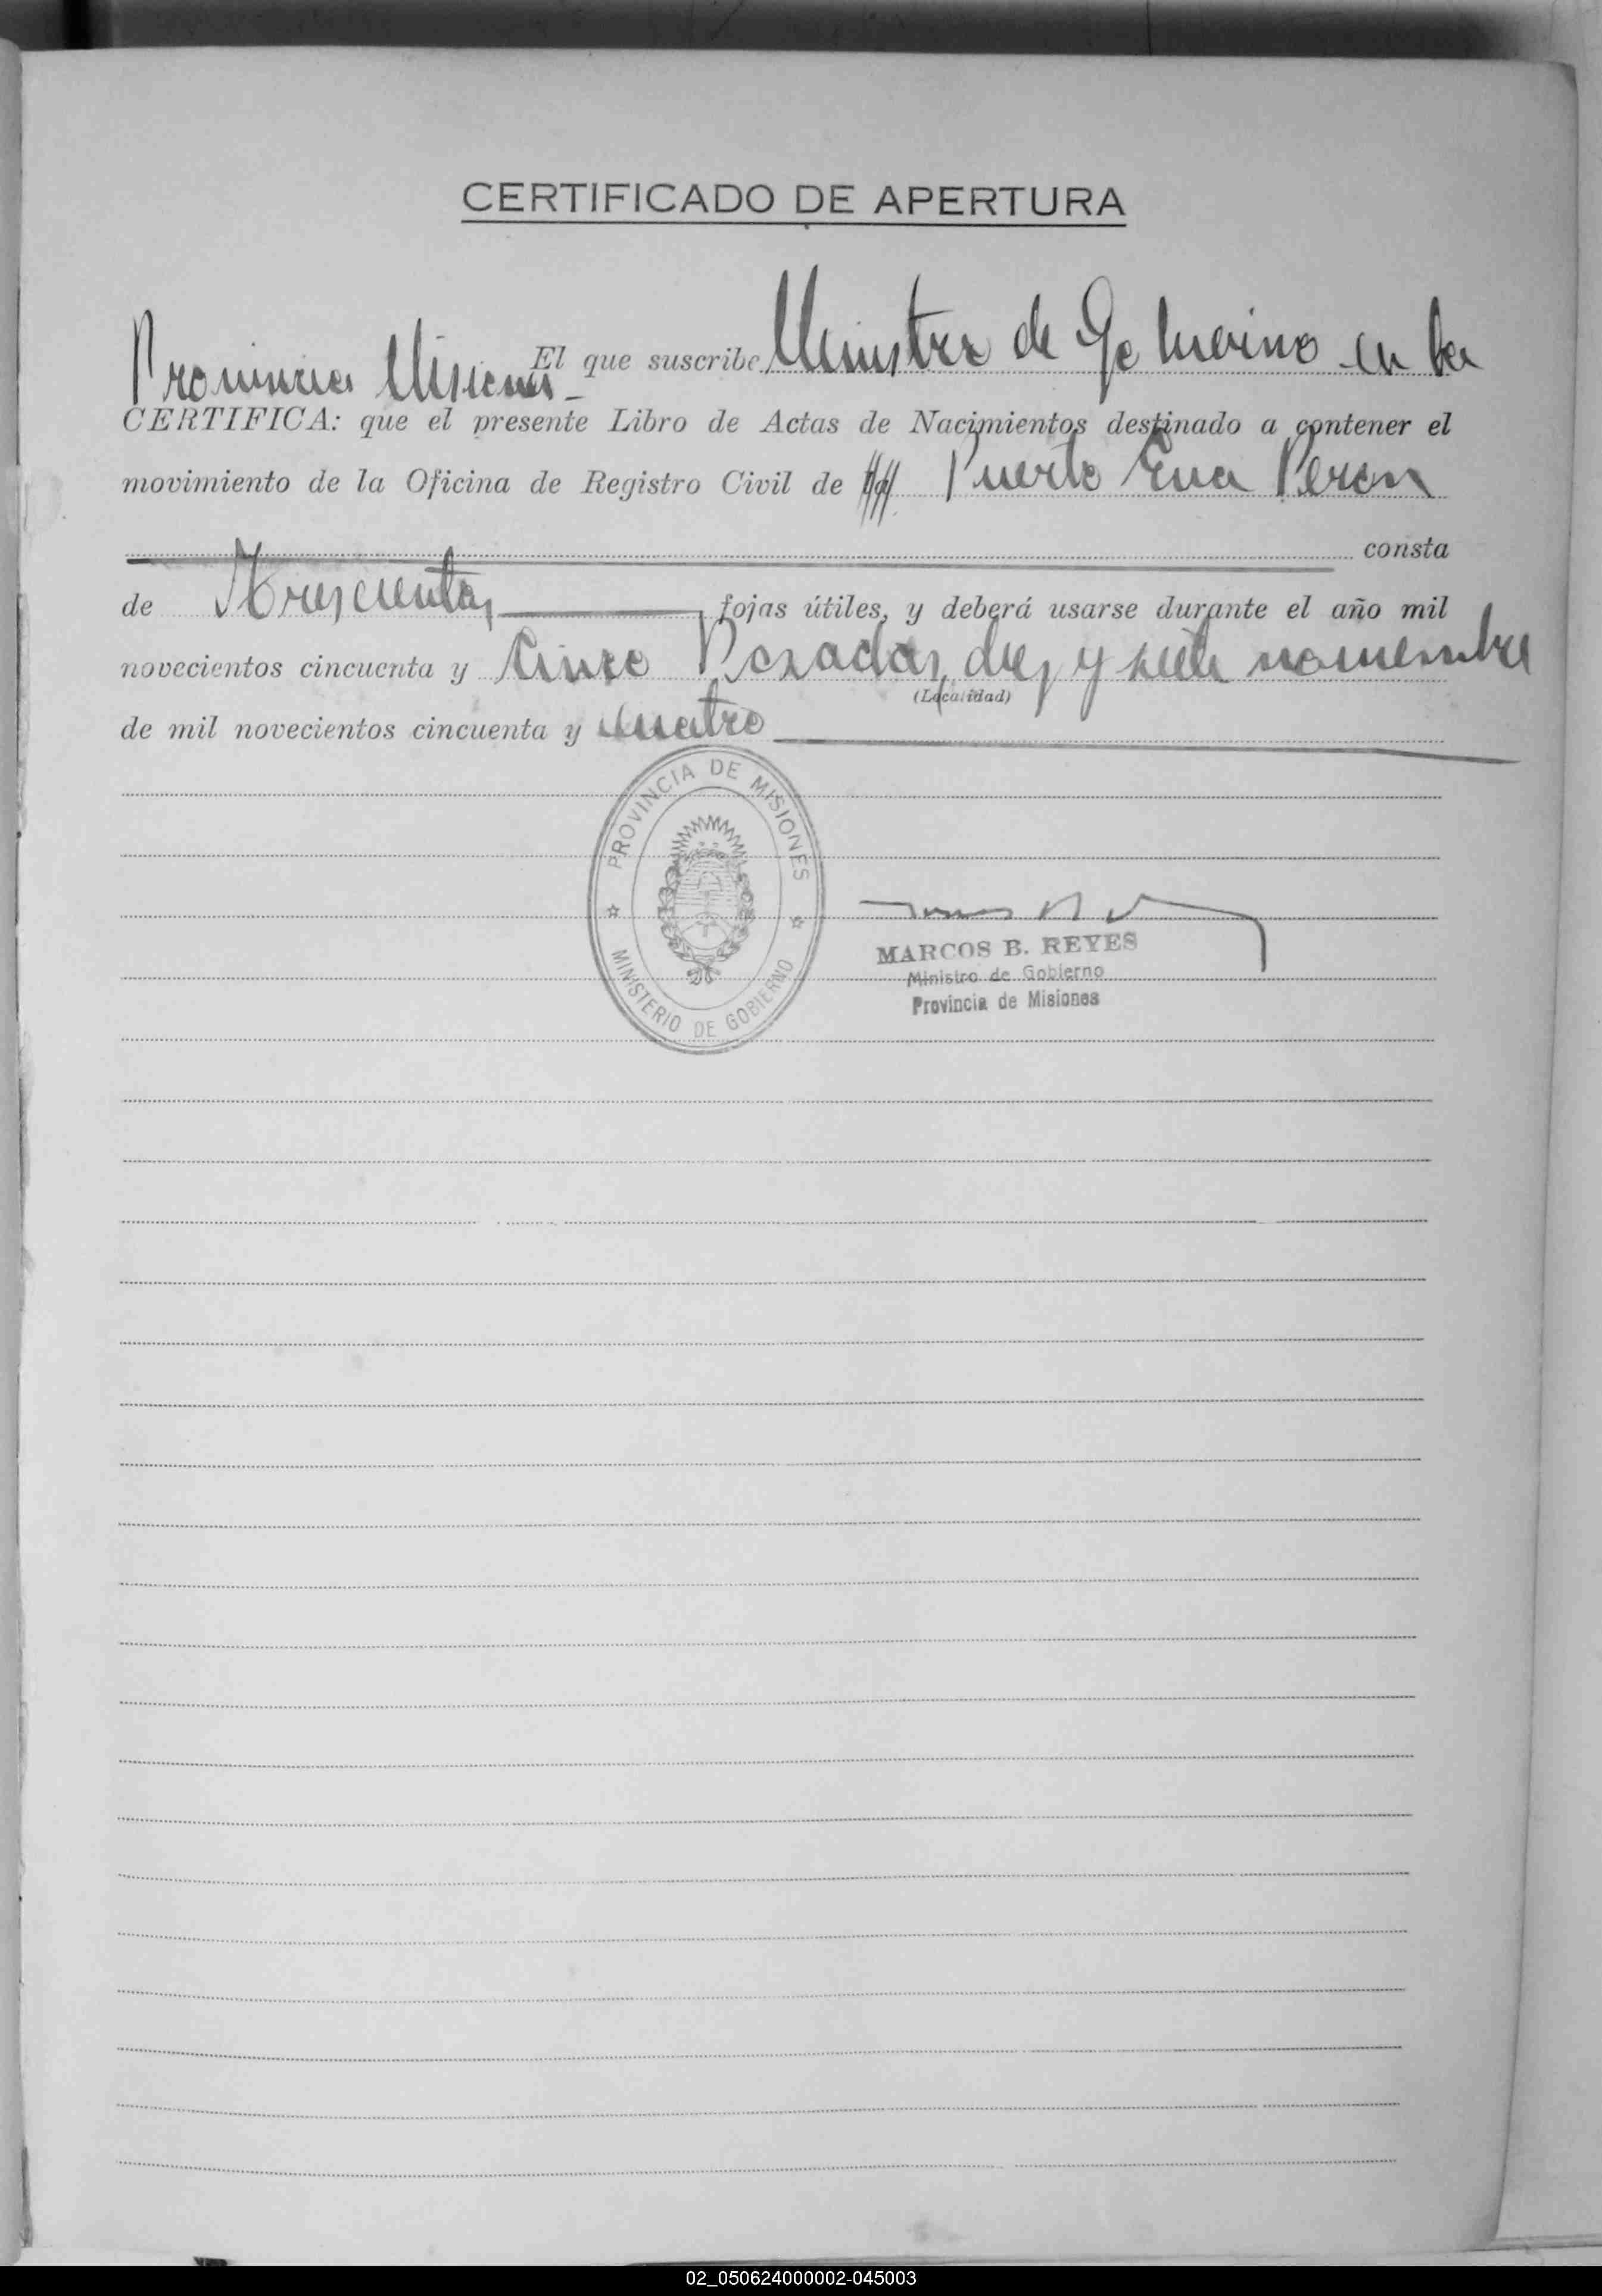 CERTIFICADO DE APERTURA
El que suscribe Ministro de Gobierno en la
Provincia Misiones
CERTIFICA: que el presente Libro de Actas de Nacimientos destinado a contener el
movimiento de la Oficina de Registro Civil de Puerto Eva Peron
consta
de Trescientas fojas útiles, y deberá usarse durante el año mil
novecientos cincuenta y Cinco Posadas, diez y siete noviembre
(Localidad)
de mil novecientos cincuenta y cuatro
PROVINCIA DE MISIONES
MINISTERIO DE GOBIERNO
MARCOS B. REYES
Ministro de Gobierno
Provincia de Misiones
02_050624000002-045003